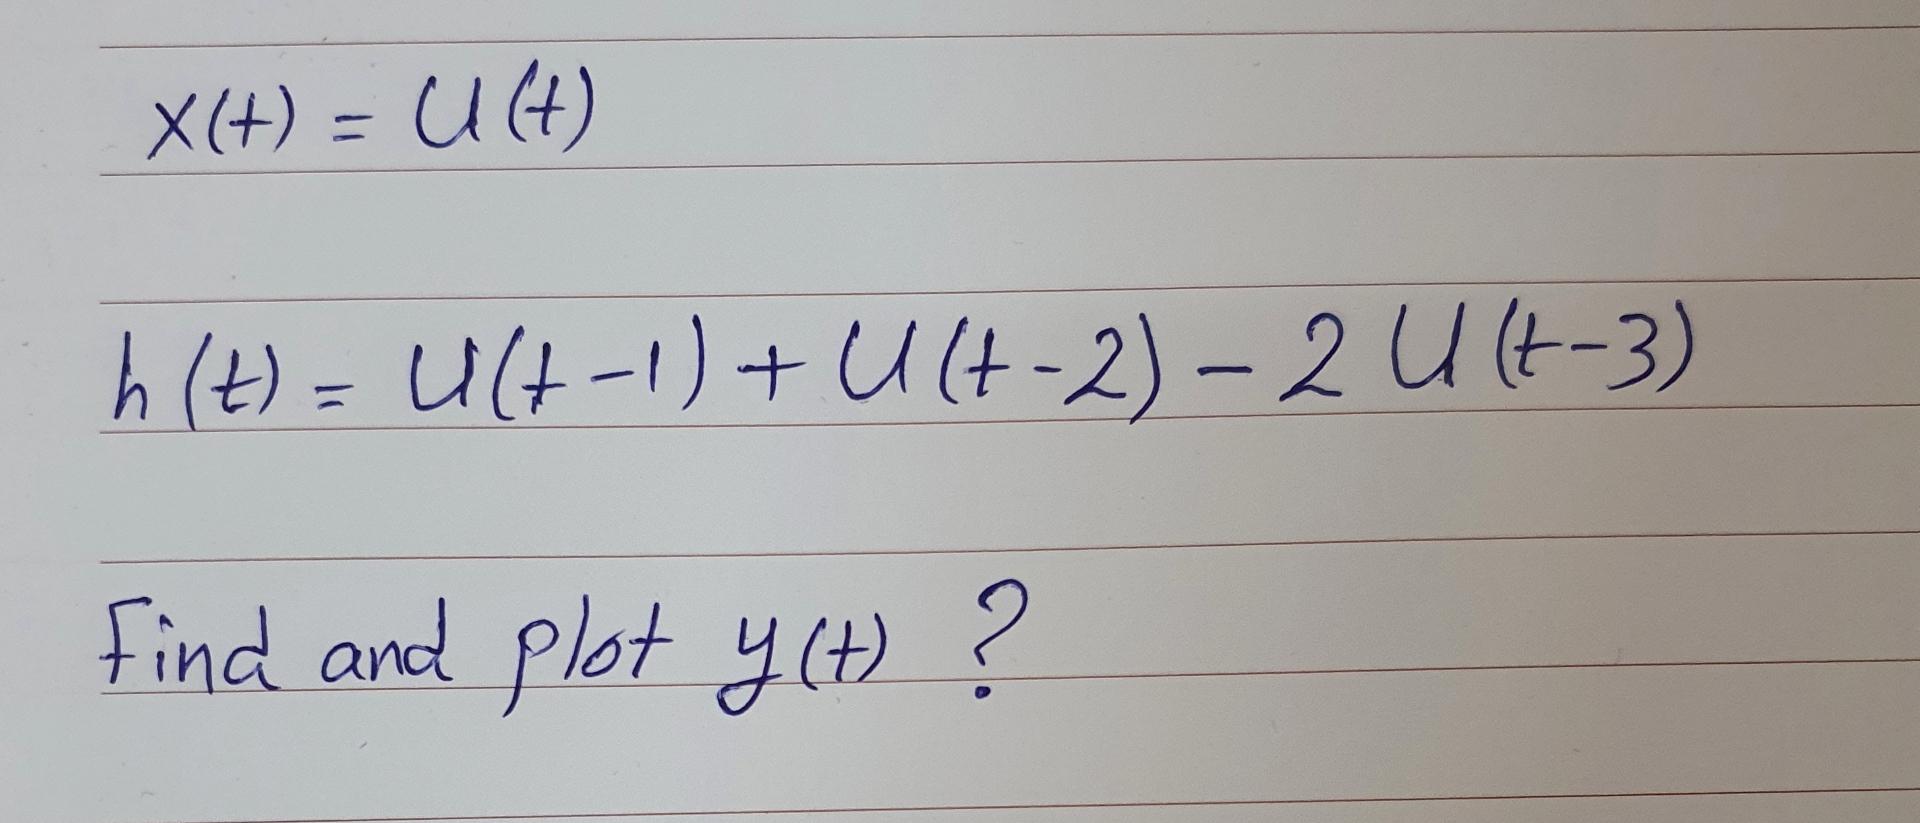 x(t) = U(t)
h(t) = U(t-1) + U(t-2) - 2 U(t-3)
Find and plot y(t) ?